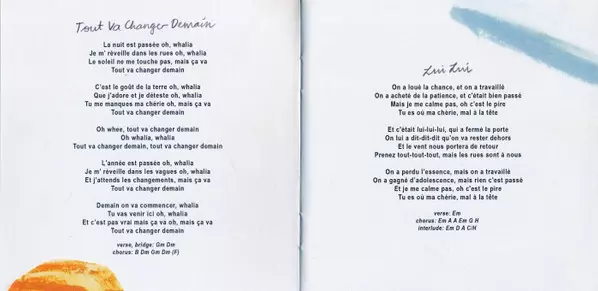 Tout Va Changer Demain
La nuit est passée oh, whalia
Je m' réveille dans les rues oh, whalia
Le soleil ne me touche pas, mais ça va
Tout va changer demain
C'est le goût de la terre oh, whalia
Que j'adore et je déteste oh, whalia
Tu me manques ma chérie oh, mais ça va
Tout va changer demain
Oh whee, tout va changer demain
Oh whalia, whalia
Tout va changer demain, tout va changer demain
L'année est passée oh, whalia
Je m' réveille dans les vagues oh, whalia
Et j'attends les changements, mais ça va
Tout va changer demain
Demain on va commencer, whalia
Tu vas venir ici oh, whalia
Et c'est pas vrai mais ça va oh, mais ça va
Tout va changer demain
verse, bridge: Gm Dm
chorus: B Dm Gm Dm (F)
Lui Lui
On a loué la chance, et on a travaillé
On a acheté de la patience, et c'était bien passé
Mais je me calme pas, oh c'est le pire
Tu es où ma chérie, mal à la tête
Et c'était lui-lui-lui, qui a fermé la porte
On lui a dit-dit-dit qu'on va rester dehors
Et le vent nous portera de retour
Prenez tout-tout-tout, mais les rues sont à nous
On a perdu l'essence, mais on a travaillé
On a gagné d'adolescence, mais rien c'est passé
Et je me calme pas, oh c'est le pire
Tu es où ma chérie, mal à la tête
verse: Em
chorus: Em A A Em G H
interlude: Em D A C/H